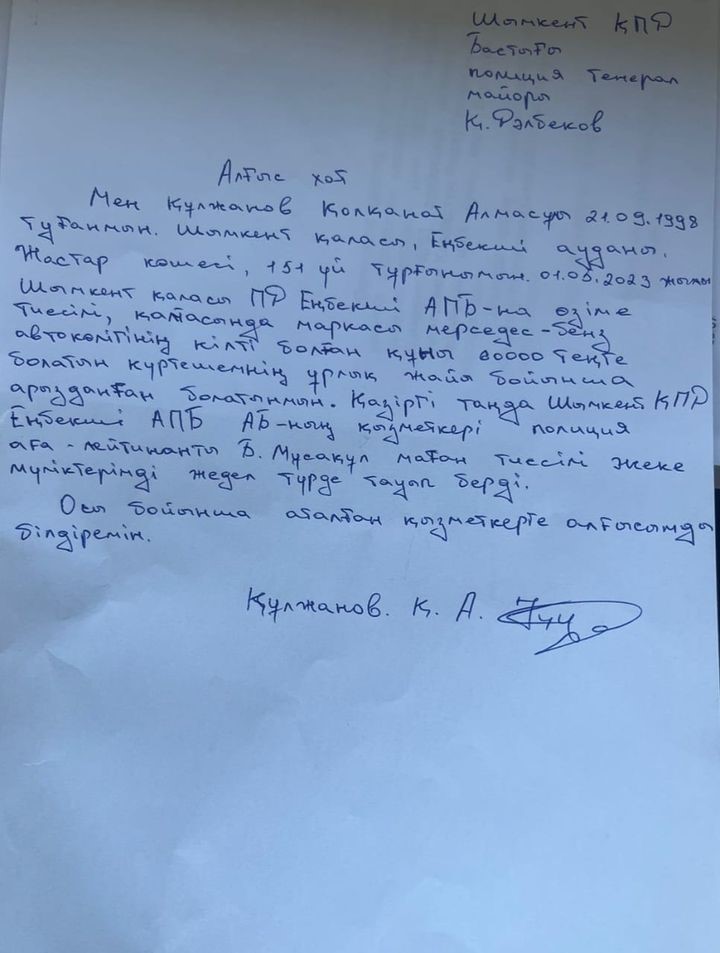 Шымкент ҚПД
Бастығы
полиция генерал
майоры
Қ. Дәлбеков
Алғыс хат
Мен Құлжанов Қолқанат Алмасұлы 21.09.1998
туғанмын. Шымкент қаласы, Еңбекші ауданы,
Жастар көшесі, 151 үй тұрғынымын. 01.05.2023 жылы
Шымкент қаласы ПД Еңбекші АПБ-на өзіме
тиесілі, қалтасында маркасы мерседес-бенз
автокөлігінің кілті болған құны 80000 теңге
болатын күртешемнің ұрлық жайы бойынша
арызданған болатынмын. Қазіргі таңда Шымкент ҚПД
Еңбекші АПБ АБ-ның қызметкері полиция
аға-лейтинанты Б. Мұсақұл маған тиесілі жеке
мүліктерімді жедел түрде тауып берді.
Осы бойынша аталған қызметкерге алғысымды
білдіремін.
Құлжанов. Қ. А.